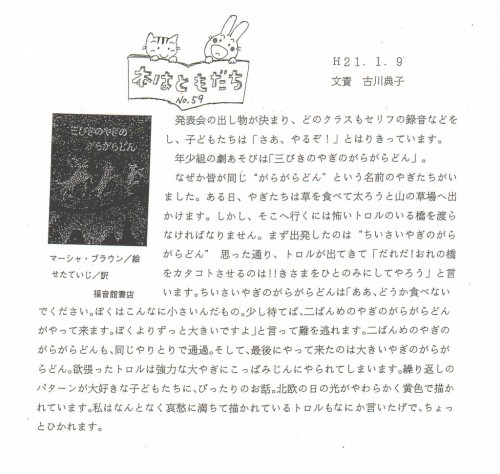 本はともだち
No.59
H21.1.9
文責 古川典子
三びきのやぎの
がらがらどん
マーシャ・ブラウン/絵
せたていじ/訳
福音館書店
発表会の出し物が決まり、どのクラスもセリフの録音などを
し、子どもたちは「さあ、やるぞ！」とはりきっています。
年少組の劇あそびは「三びきのやぎのがらがらどん」。
なぜか皆が同じ“がらがらどん”という名前のやぎたちがい
ました。ある日、やぎたちは草を食べて太ろうと山の草場へ出
かけます。しかし、そこへ行くには怖いトロルのいる橋を渡ら
なければなりません。まず出発したのは“ちいさいやぎのがら
がらどん” 思った通り、トロルが出てきて「だれだ！おれの橋
をカタコトさせるのは!!きさまをひとのみにしてやろう」と言
います。ちいさいやぎのがらがらどんは「ああ、どうか食べない
でください。ぼくはこんなに小さいんだもの。少し待てば、二ばんめのやぎのがらがらどん
がやって来ます。ぼくよりずっと大きいですよ」と言って難を逃れます。二ばんめのやぎの
がらがらどんも、同じやりとりで通過。そして、最後にやって来たのは大きいやぎのがらが
らどん。欲張ったトロルは強力な大やぎにこっぱみじんにやられてしまいます。繰り返しの
パターンが大好きな子どもたちに、ぴったりのお話。北欧の日の光がやわらかく黄色で描か
れています。私はなんとなく哀愁に満ちて描かれているトロルもなにか言いたげで、ちょっ
とひかれます。